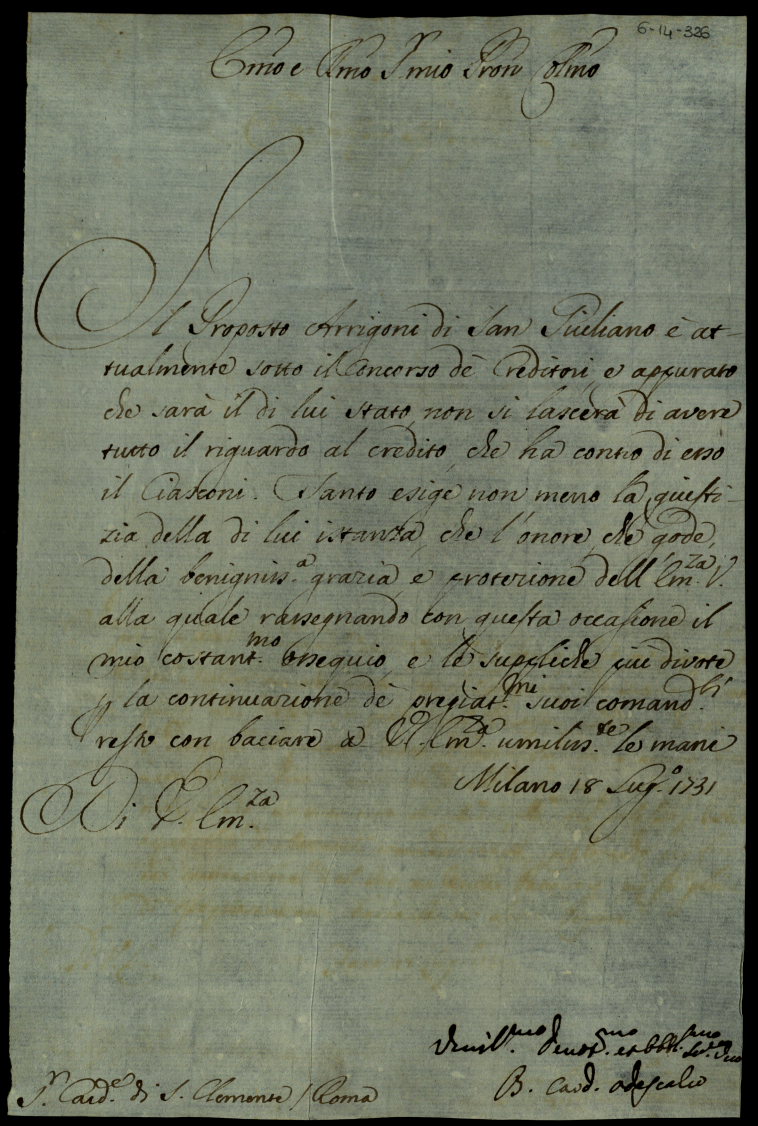 6-14-326
Emo e Rmo Sr mio Pron Colmo
Il Proposto Arrigoni di San Giuliano è at-
tualmente sotto il Concorso de Creditori, e appurato
che sarà il di lui stato, non si lascerà di avere
tutto il riguardo al credito, che ha contro di esso
il Ciasconi. Tanto esige non meno la giusti-
zia della di lui istanza, che l'onore, che gode,
della benigniss.a grazia, e protezione dell'Em.za V.
alla quale rassegnando con questa occasione il
mio costant.mo ossequio, e le suppliche più divote
p la continuazione de pregiat.mi suoi comand.ti
resto con baciare a V. Em.za umiliss.te le mani
Milano 18 Lug.o 1731
Di V. Em.za
Umil.mo Devot.mo et obbl.mo Se.re Vero
B. Card. Odescalco
Sr. Card.e di S. Clemente / Roma